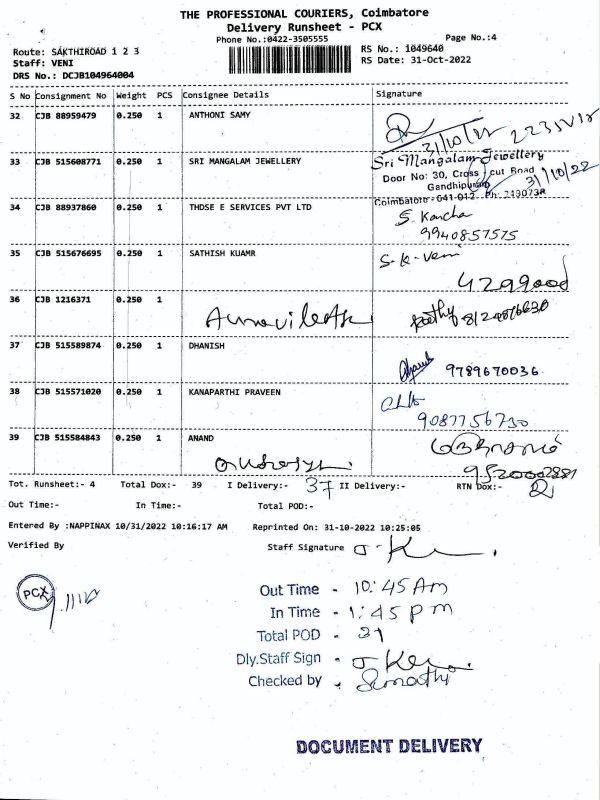 THE PROFESSIONAL COURIERS, Coimbatore
Delivery Runsheet - PCX
Phone No.:0422-3505555
Page No.:4
Route: SAKTHIROAD 1 2 3
RS No.: 1049640
Staff: VENI
RS Date: 31-Oct-2022
DRS No.: DCJB104964004
S No Consignment No Weight PCS Consignee Details Signature
32 CJB 88959479 0.250 1 ANTHONI SAMY
31/10/22
33 CJB 515608771 0.250 1 SRI MANGALAM JEWELLERY
Sri Mangalam Jewellery
Door No: 30, Cross cut Road
Gandhipuram 31/10/22
Coimbatore - 641 012. Ph:
34 CJB 88937860 0.250 1 THDSE E SERVICES PVT LTD
S. Kancha
9940857575
35 CJB 515676695 0.250 1 SATHISH KUAMR
S-K-Veni
36 CJB 1216371 0.250 1
37 CJB 515589874 0.250 1 DHANISH
9789670036
38 CJB 515571020 0.250 1 KANAPARTHI PRAVEEN
9087756730
39 CJB 515584843 0.250 1 ANAND
Tot. Runsheet:- 4 Total Dox:- 39 I Delivery:- 37 II Delivery:- RTN Dox:-
Out Time:- In Time:- Total POD:-
Entered By :NAPPINAX 10/31/2022 10:16:17 AM Reprinted On: 31-10-2022 10:25:05
Verified By Staff Signature
PCX
Out Time - 10:45 Am
In Time - 1:45 pm
Total POD -
Dly.Staff Sign -
Checked by - Sumathi
DOCUMENT DELIVERY